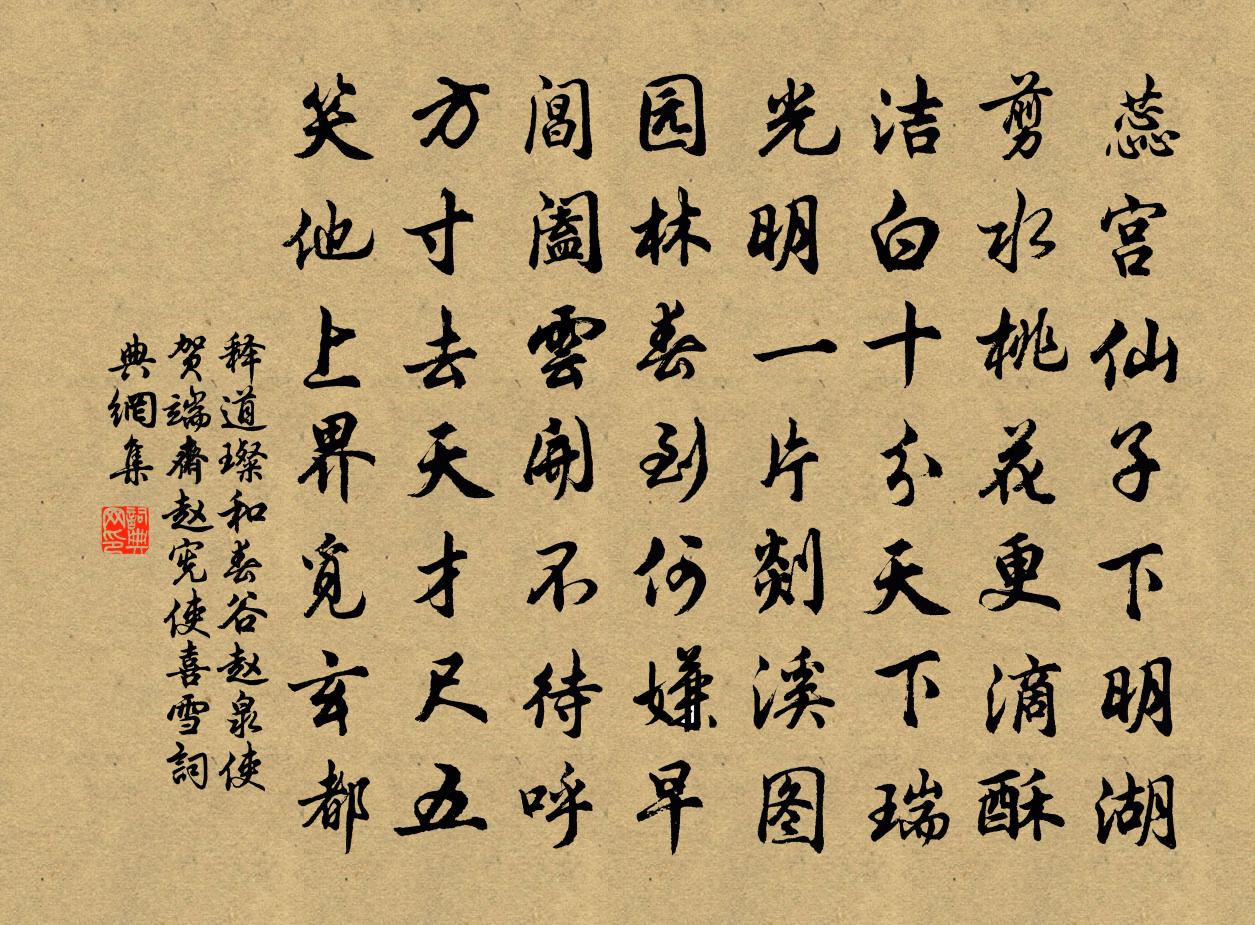 蕊宫仙子下明湖
剪水桃花更滴酥
洁白十分天下瑞
光明一片剡溪图
园林春到何嫌早
阊阖雲開不待呼
方寸去天才尺五
笑他上界觅玄都
释道璨和春谷赵泉使
贺端斋赵宪使喜雪詞
典網集
詞典
网印